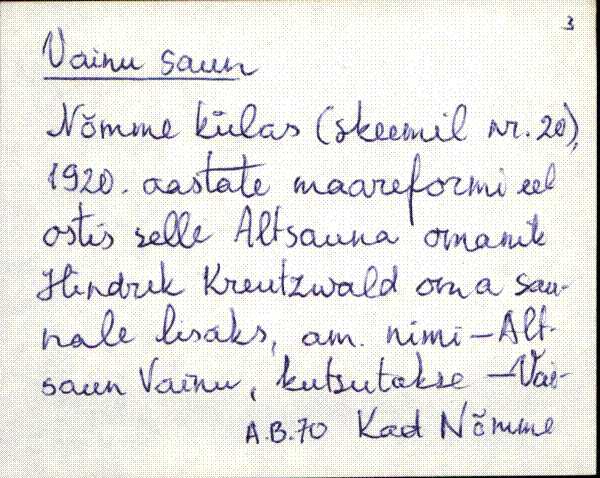 3
Vainu saun
Nõmme külas (skeemil nr. 20),
1920. aastate maareformi eel
ostis selle Altsauna omanik
Hindrek Kreutzwald oma sau-
nale lisaks, am. nimi – Alt-
saun Vainu, kutsutakse – Vai-
A.B.70 Kad Nõmme